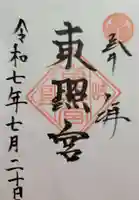 奉拝
東照宮
令和七年七月二十日